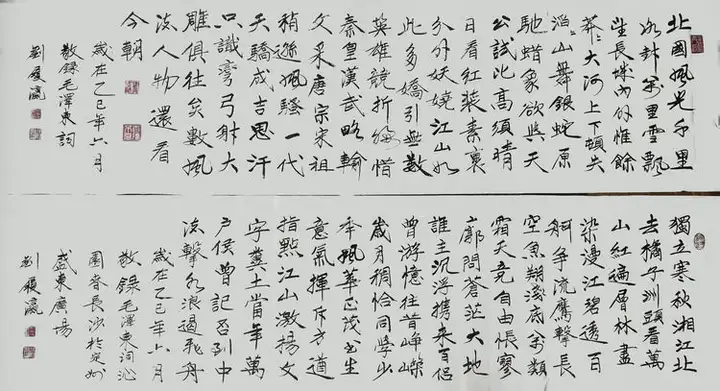 北國風光千里
冰封萬里雪飄
望長城內外惟餘
莽〻大河上下頓失
滔〻山舞銀蛇原
馳蠟象欲與天
公試比高須晴
日看紅裝素裹
分外妖嬈江山如
此多嬌引無數
英雄競折腰惜
秦皇漢武略輸
文采唐宗宋祖
稍遜風騷一代
天驕成吉思汗
只識彎弓射大
雕俱往矣數風
流人物還看
今朝
歲在乙巳年六月
敬錄毛澤東詞
劉履瀛
獨立寒秋湘江北
去橘子洲頭看萬
山紅遍層林盡
染漫江碧透百
舸爭流鷹擊長
空魚翔淺底萬類
霜天競自由悵寥
廓問蒼茫大地
誰主沉浮携來百侶
曾游憶往昔崢嶸
歲月稠恰同學少
年風華正茂書生
意氣揮斥方遒
指點江山激揚文
字糞土當年萬
戶侯曾記否到中
流擊水浪遏飛舟
歲在乙巳年六月
敬錄毛澤東詞沁
園春長沙於定州
盛東廣場
劉履瀛